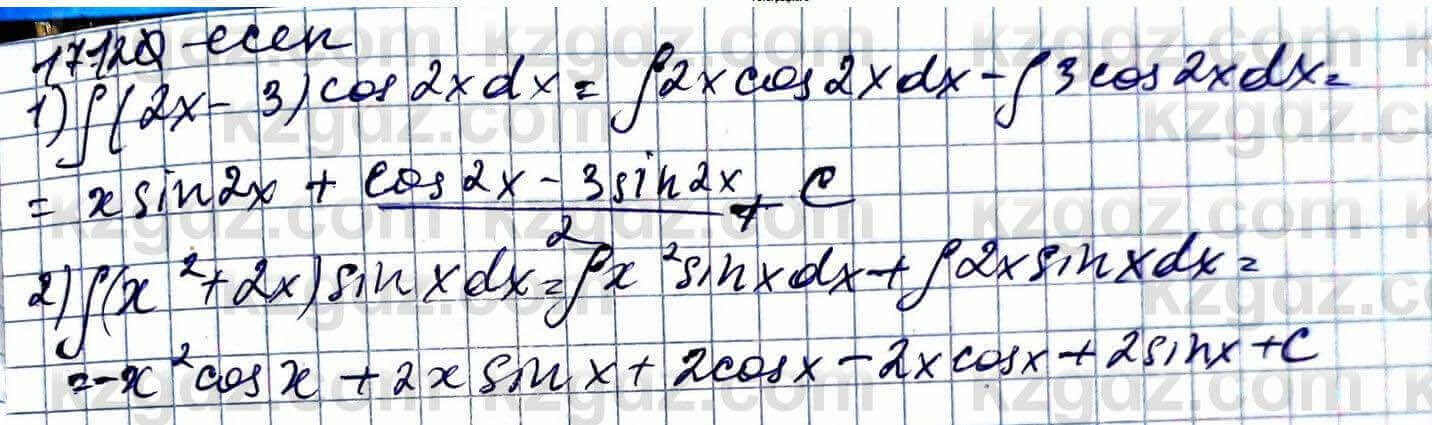 17.120 - есеп
1) ∫(2x - 3) cos 2x dx = ∫2x cos 2x dx - ∫3 cos 2x dx =
= x sin 2x + (cos 2x - 3 sin 2x)/2 + C
2) ∫(x² + 2x) sin x dx = ∫x² sin x dx + ∫2x sin x dx =
= -x² cos x + 2x sin x + 2cos x - 2x cos x + 2 sin x + C
kzgdz.com